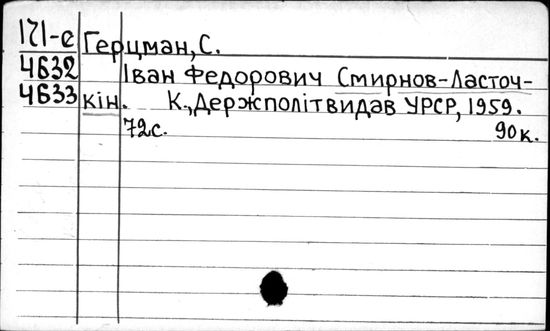 171-е Герцман, С.
4632 Іван Федорович Смирнов-Ласточ-
4633 кін. К., Держполітвидав УРСР, 1959.
72с. 90к.